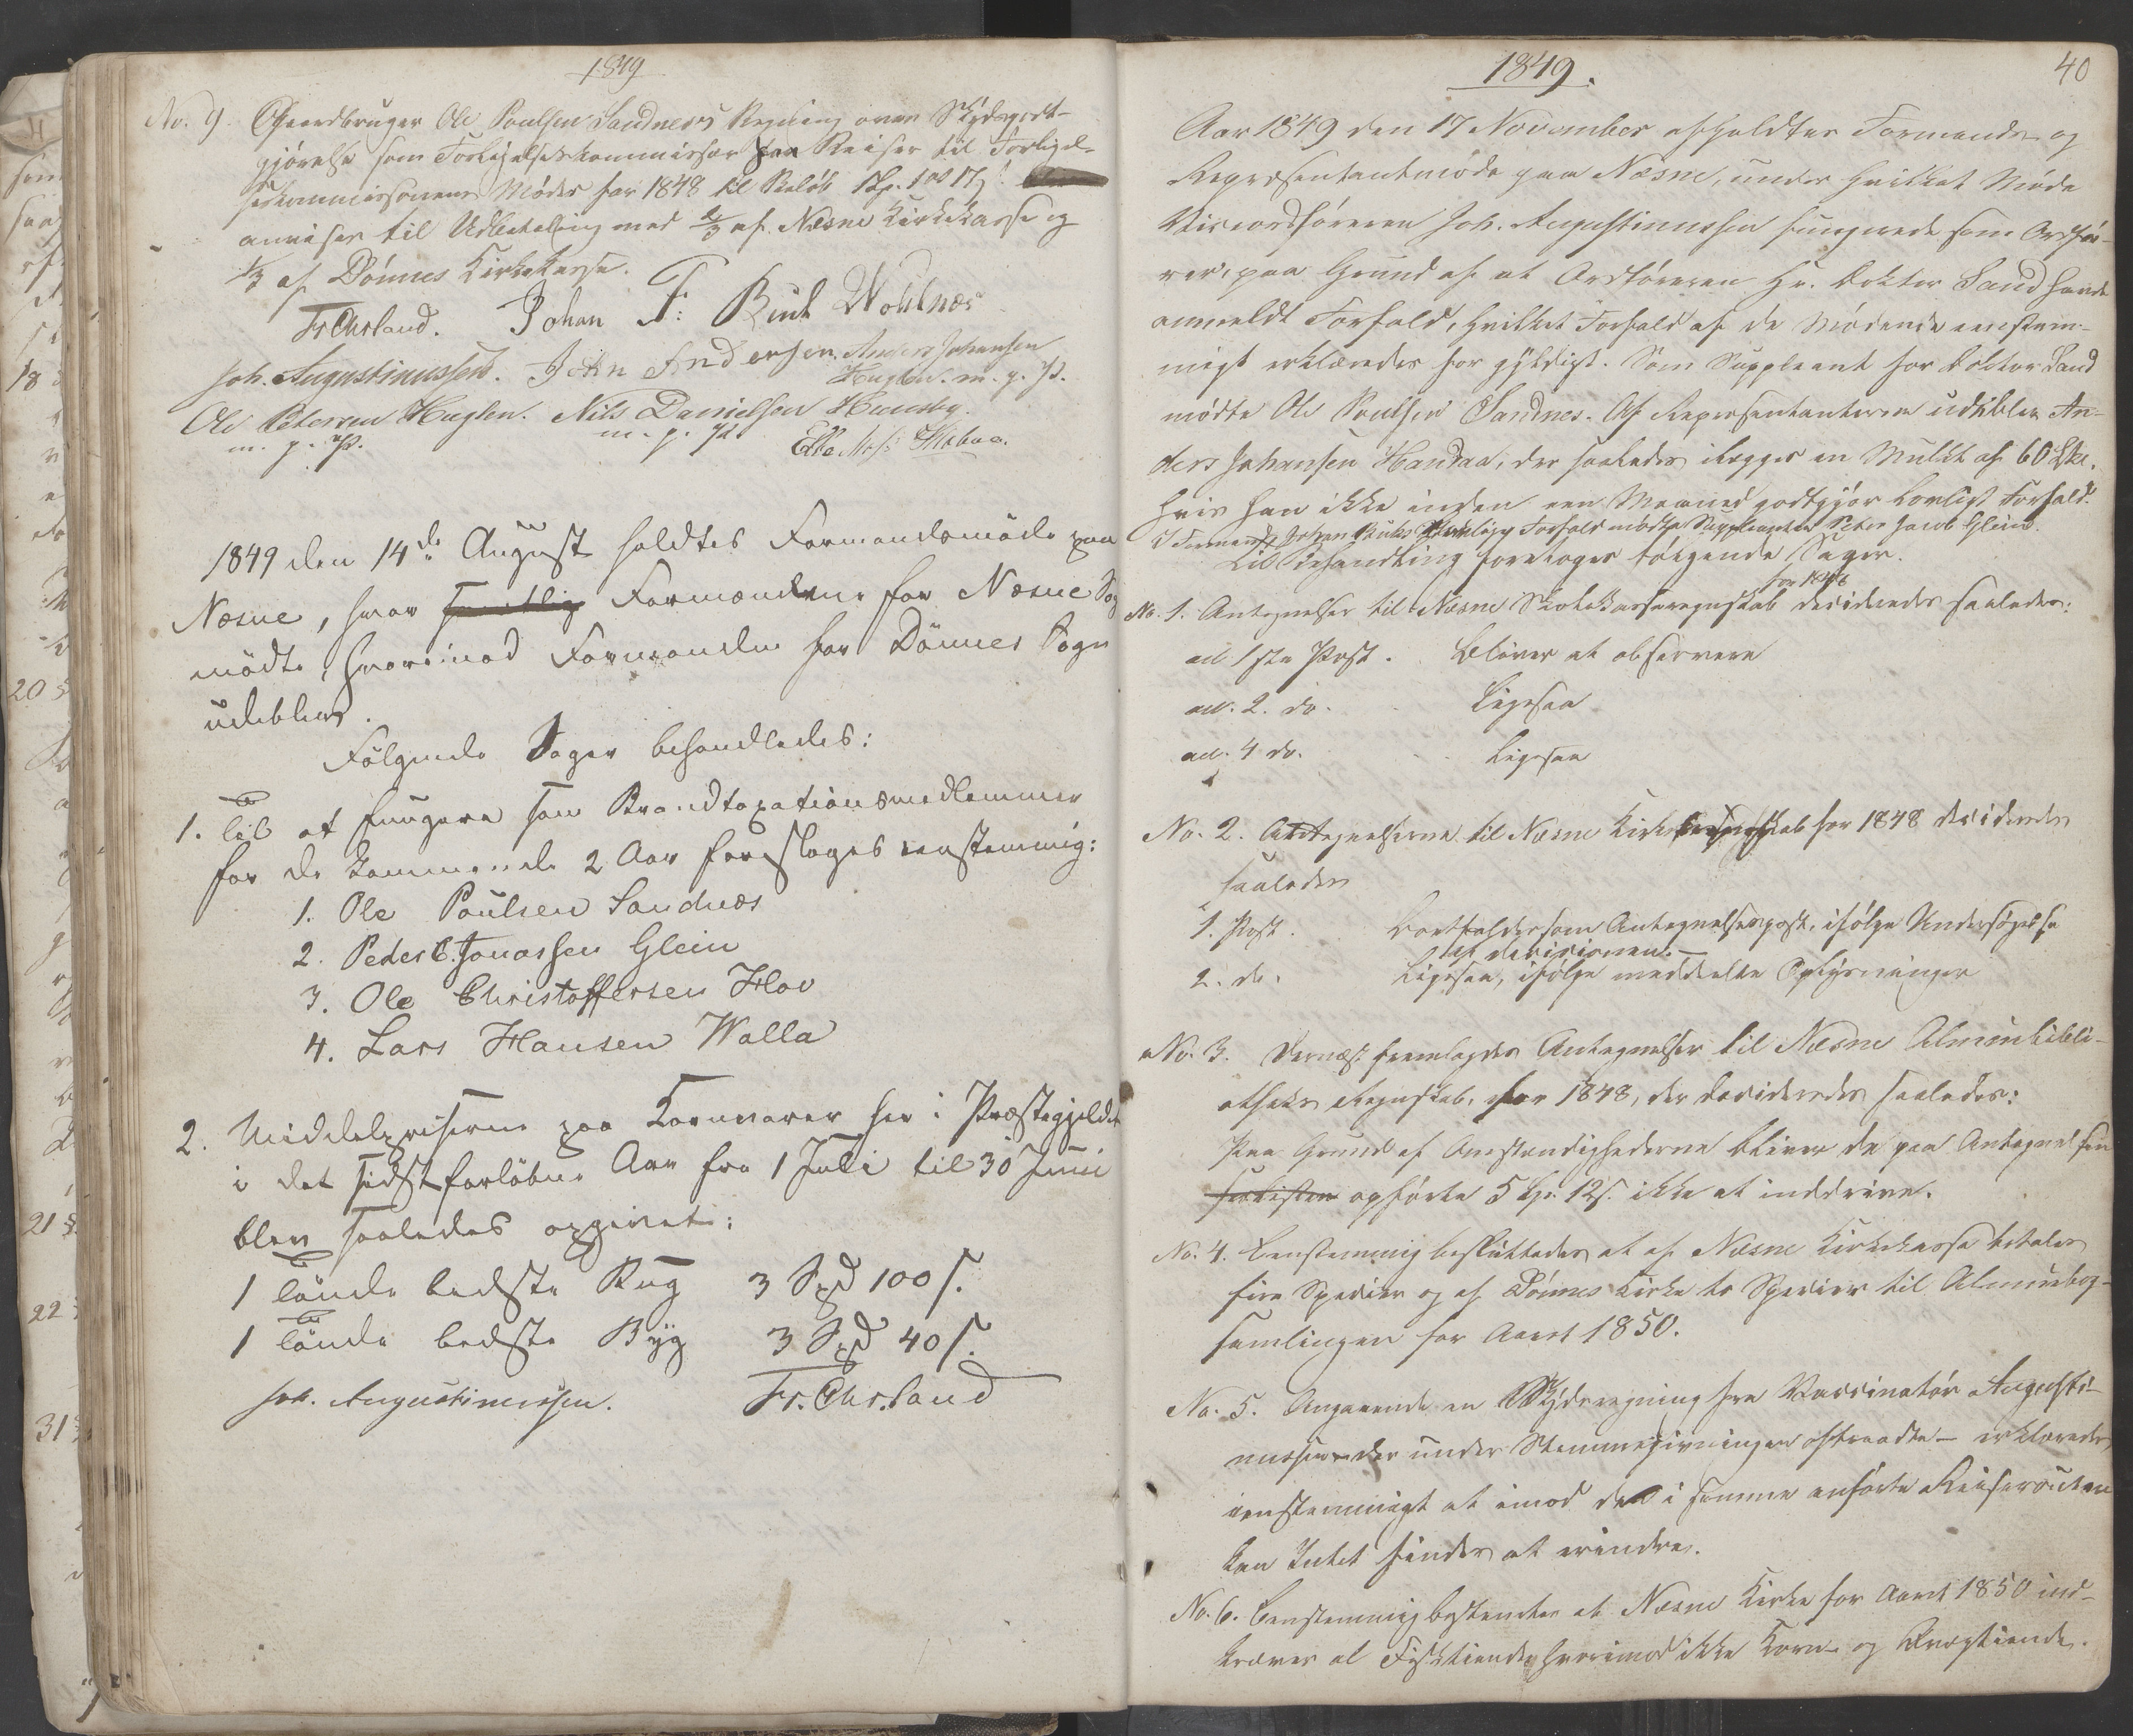 1849
No. 9. Gaardbruger Ole Paulsen Sandnes's Regning over Skydsgodt-
gjørelse som Forligelseskommissær paa Reiser til Forligel-
seskommissionens Møder for 1848 til Beløb
anvises til Udbetaling med 2/3 af Næsne Kirkekasse og
1/3 af Dønnes Kirkekasse.
Johan F: Bink
Joh. Augustinussen. John Andersen. Anders Johansen
Huglen. m. p. P.
Ole Petersen Huglen. Nils Danielsen
m. p. P. m. p. P.
1849 den 14de August holdtes Formandsmøde paa
Næsne, hvor samtlige Formændene for Næsne Sog
mødte, hvorimod Formændene for Dønnes Sogn
udeblev.
Følgende Sager behandledes:
1. Til at fungere som Brandtaxationsmedlemmer
for de kommende 2 Aar foresloges eenstemmig:
1. Ole Paulsen Sandnæs
2. Peder C. Jonassen Glein
3. Ole Christoffersen Hov
4. Lars Hansen Walla
2. Middelpriserne paa Kornvarer her i Præstegjeldet
i det sidst forløbne Aar fra 1 Juli til 30 Juni
blev saaledes opgivet:
1 Tønde bedste Rug 3 Spd 100 s.
1 Tønde bedste Byg 3 Spd 40 s.
Joh. Augustinussen.
1849.
40
Aar 1849 den 17 November afholdtes Formands og
Repræsentantmøde paa Næsne, under hvilket Møde
Viceordføreren Joh. Augustinussen fungerede som Ordfø-
rer, paa Grund af at Ordføreren Hr. Doktor Sand havde
anmeldt Forfald, hvilket Forfald af de Mødende eenstem-
migt erklæredes for gyldigt. Som Suppleant for Doktor Sand
mødte Ole Paulsen Sandnes. Af Repræsentanterne udeblev An-
ders Johansen Handaa, der saaledes ilægges en Mulkt af 60 Sk.
hvis han ikke inden een Maaned godtgjør lovligt Forfald.
I Formand Johan Forfald mødte Suppleanten Peter Jacob Glein.
Til Behandling foretoges følgende Sager.
No. 1. Antegnelser til Næsne Skolekasseregnskab for 1848 decideredes saaledes:
ad 1ste Post. Bliver at observere
ad. 2. do. Ligesaa
ad. 4 do. Ligesaa
No. 2. Antegnelserne til Næsne Kirkeregnskab for 1848 decideredes
saaledes
1. Post. Bortfalder som Antegnelsespost, ifølge Undersøgelse
af decisionen.
2. do. Ligesaa, ifølge meddelte Oplysninger
No. 3. Dernæst fremlagdes Antegnelser til Næsne Almuebibli-
otheks Regnskab, for 1848, der decideredes saaledes:
Paa Grund af Omstændighederne bliver de paa Antegnelsen
opførte 5 Sp. 12 s. ikke at inddrive.
No. 4. Eenstemmig besluttedes at af Næsne Kirkekasse betales
fire Specier og af Dønnes Kirke to Specier til Almuebog-
samlingen for Aaret 1850.
No. 5. Angaaende en Skydsregning fra Vaccinatør Augusti-
nussen der under Stemmegivningen aftraadte – erklæredes
eenstemmigt at imod den i samme anførte Reiseruten
kan Intet findes at erindre.
No. 6. Eenstemmig bestemtes at Næsne Kirke for Aaret 1850 ind-
kræver al Fisketiende hvorimod ikke Korn- og Qvægtiende.